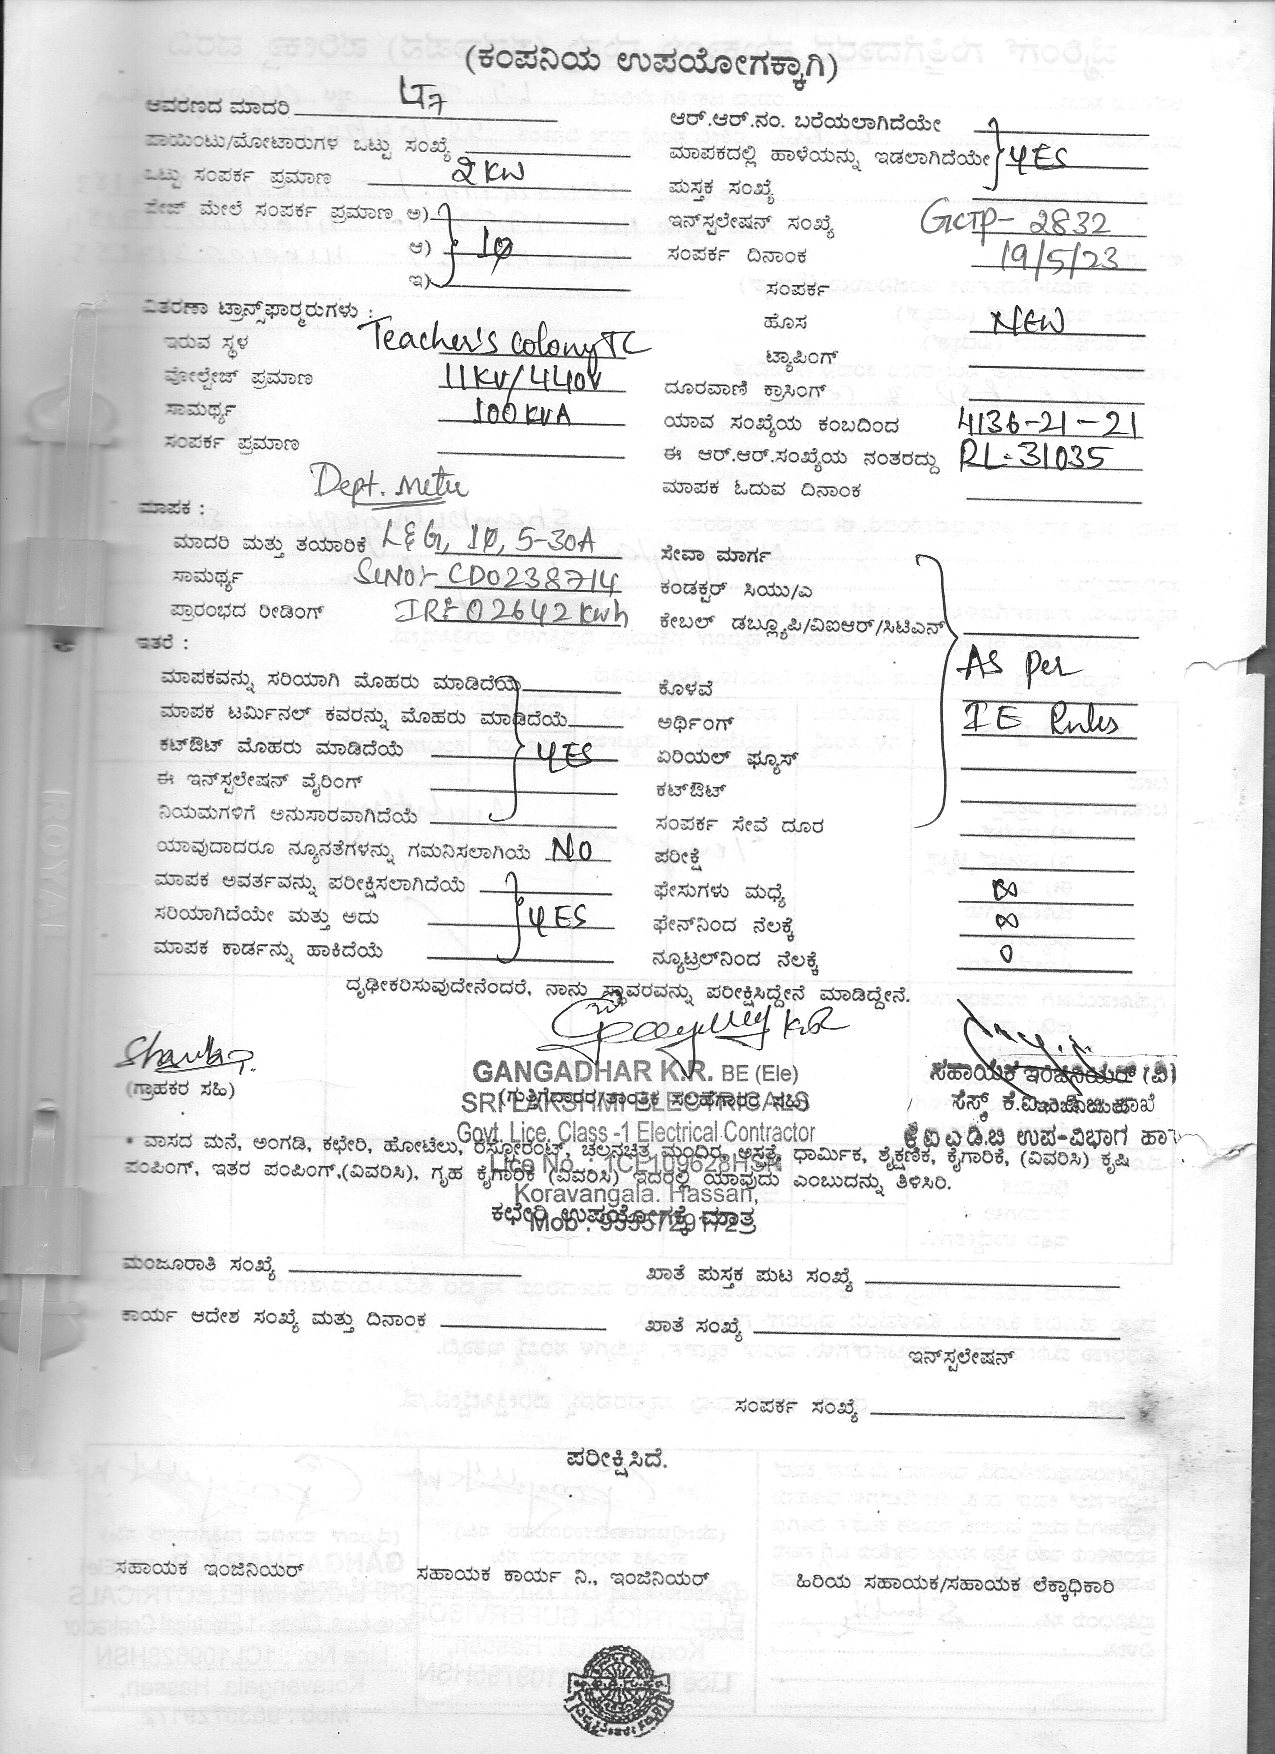 (ಕಂಪನಿಯ ಉಪಯೋಗಕ್ಕಾಗಿ)
ಆವರಣದ ಮಾದರಿ LT7
ಪಾಯಿಂಟು/ಮೋಟಾರುಗಳ ಒಟ್ಟು ಸಂಖ್ಯೆ
ಒಟ್ಟು ಸಂಪರ್ಕ ಪ್ರಮಾಣ 2KW
ಪೇಜ್ ಮೇಲೆ ಸಂಪರ್ಕ ಪ್ರಮಾಣ ಅ)
ಆ) 1φ
ಇ)
ವಿತರಣಾ ಟ್ರಾನ್ಸ್‌ಫಾರ್‍ಮರುಗಳು :
ಇರುವ ಸ್ಥಳ Teacher's Colony TC
ವೋಲ್ಟೇಜ್ ಪ್ರಮಾಣ 11KV/440V
ಸಾಮರ್ಥ್ಯ 100KVA
ಸಂಪರ್ಕ ಪ್ರಮಾಣ
Dept. Meter
ಮಾಪಕ :
ಮಾದರಿ ಮತ್ತು ತಯಾರಿಕೆ L&G, 1φ, 5-30A
ಸಾಮರ್ಥ್ಯ SlNo:- CD0238714
ಪ್ರಾರಂಭದ ರೀಡಿಂಗ್ IR:- 02642 kwh
ಇತರೆ :
ಮಾಪಕವನ್ನು ಸರಿಯಾಗಿ ಮೊಹರು ಮಾಡಿದೆಯೆ
ಮಾಪಕ ಟರ್ಮಿನಲ್ ಕವರನ್ನು ಮೊಹರು ಮಾಡಿದೆಯೆ
ಕಟ್‌ಔಟ್ ಮೊಹರು ಮಾಡಿದೆಯೆ YES
ಈ ಇನ್‌ಸ್ಟಲೇಷನ್ ವೈರಿಂಗ್
ನಿಯಮಗಳಿಗೆ ಅನುಸಾರವಾಗಿದೆಯೆ
ಯಾವುದಾದರೂ ನ್ಯೂನತೆಗಳನ್ನು ಗಮನಿಸಲಾಗಿಯೆ NO
ಮಾಪಕ ಅವರ್ತವನ್ನು ಪರೀಕ್ಷಿಸಲಾಗಿದೆಯೆ
ಸರಿಯಾಗಿದೆಯೇ ಮತ್ತು ಅದು YES
ಮಾಪಕ ಕಾರ್ಡನ್ನು ಹಾಕಿದೆಯೆ
ಆರ್.ಆರ್.ನಂ. ಬರೆಯಲಾಗಿದೆಯೇ
ಮಾಪಕದಲ್ಲಿ ಹಾಳೆಯನ್ನು ಇಡಲಾಗಿದೆಯೇ YES
ಪುಸ್ತಕ ಸಂಖ್ಯೆ
ಇನ್‌ಸ್ಟಲೇಷನ್ ಸಂಖ್ಯೆ GCTP- 2832
ಸಂಪರ್ಕ ದಿನಾಂಕ 19/5/23
ಸಂಪರ್ಕ
ಹೊಸ NEW
ಟ್ಯಾಪಿಂಗ್
ದೂರವಾಣಿ ಕ್ರಾಸಿಂಗ್
ಯಾವ ಸಂಖ್ಯೆಯ ಕಂಬದಿಂದ 4136-21-21
ಈ ಆರ್.ಆರ್.ಸಂಖ್ಯೆಯ ನಂತರದ್ದು RL-31035
ಮಾಪಕ ಓದುವ ದಿನಾಂಕ
ಸೇವಾ ಮಾರ್ಗ
ಕಂಡಕ್ಟರ್ ಸಿಯು/ಎ
ಕೇಬಲ್ ಡಬ್ಲ್ಯೂಪಿ/ವಿಐಆರ್/ಸಿಟಿಎನ್
As per
ಕೊಳವೆ
ಅರ್ಥಿಂಗ್ IE Rules
ಏರಿಯಲ್ ಫ್ಯೂಸ್
ಕಟ್‌ಔಟ್
ಸಂಪರ್ಕ ಸೇವೆ ದೂರ
ಪರೀಕ್ಷೆ
ಫೇಸುಗಳು ಮಧ್ಯೆ ∞
ಫೇಸ್‌ನಿಂದ ನೆಲಕ್ಕೆ ∞
ನ್ಯೂಟ್ರಲ್‌ನಿಂದ ನೆಲಕ್ಕೆ 0
ದೃಢೀಕರಿಸುವುದೇನೆಂದರೆ, ನಾನು ಸ್ಥಾವರವನ್ನು ಪರೀಕ್ಷಿಸಿದ್ದೇನೆ ಮಾಡಿದ್ದೇನೆ.
(ಗ್ರಾಹಕರ ಸಹಿ)
GANGADHAR K.R. BE (Ele)
(ಗುತ್ತಿಗೆದಾರರ/ತಾಂತ್ರಿಕ ಸಲಹೆಗಾರರ ಸಹಿ)
SRI LAKSHMI ELECTRICALS
Govt. Lice. Class -1 Electrical Contractor
Lice No. : 1CL109628HSN
Koravangala. Hassan,
ಸಹಾಯಕ ಇಂಜಿನಿಯರ್ (ವಿ)
ಸೆಸ್ಕ್ ಕೆ.ಐ.ಎ.ಡಿ.ಬಿ ಶಾಖೆ
ಕೆಐಎಡಿಬಿ ಉಪ-ವಿಭಾಗ
* ವಾಸದ ಮನೆ, ಅಂಗಡಿ, ಕಛೇರಿ, ಹೋಟೆಲು, ರೆಸ್ಟೋರೆಂಟ್, ಚಲನಚಿತ್ರ ಮಂದಿರ, ಅಸ್ಪತ್ರೆ, ಧಾರ್ಮಿಕ, ಶೈಕ್ಷಣಿಕ, ಕೈಗಾರಿಕೆ, (ವಿವರಿಸಿ) ಕೃಷಿ
ಪಂಪಿಂಗ್, ಇತರ ಪಂಪಿಂಗ್,(ವಿವರಿಸಿ), ಗೃಹ ಕೈಗಾರಿಕೆ (ವಿವರಿಸಿ) ಇದರಲ್ಲಿ ಯಾವುದು ಎಂಬುದನ್ನು ತಿಳಿಸಿರಿ.
ಕಛೇರಿ ಉಪಯೋಗಕ್ಕೆ ಮಾತ್ರ
ಮಂಜೂರಾತಿ ಸಂಖ್ಯೆ
ಖಾತೆ ಪುಸ್ತಕ ಪುಟ ಸಂಖ್ಯೆ
ಕಾರ್ಯ ಆದೇಶ ಸಂಖ್ಯೆ ಮತ್ತು ದಿನಾಂಕ
ಖಾತೆ ಸಂಖ್ಯೆ
ಇನ್‌ಸ್ಟಲೇಷನ್
ಸಂಪರ್ಕ ಸಂಖ್ಯೆ
ಪರೀಕ್ಷಿಸಿದೆ.
ಸಹಾಯಕ ಇಂಜಿನಿಯರ್
ಸಹಾಯಕ ಕಾರ್ಯ ನಿ., ಇಂಜಿನಿಯರ್
ಹಿರಿಯ ಸಹಾಯಕ/ಸಹಾಯಕ ಲೆಕ್ಕಾಧಿಕಾರಿ